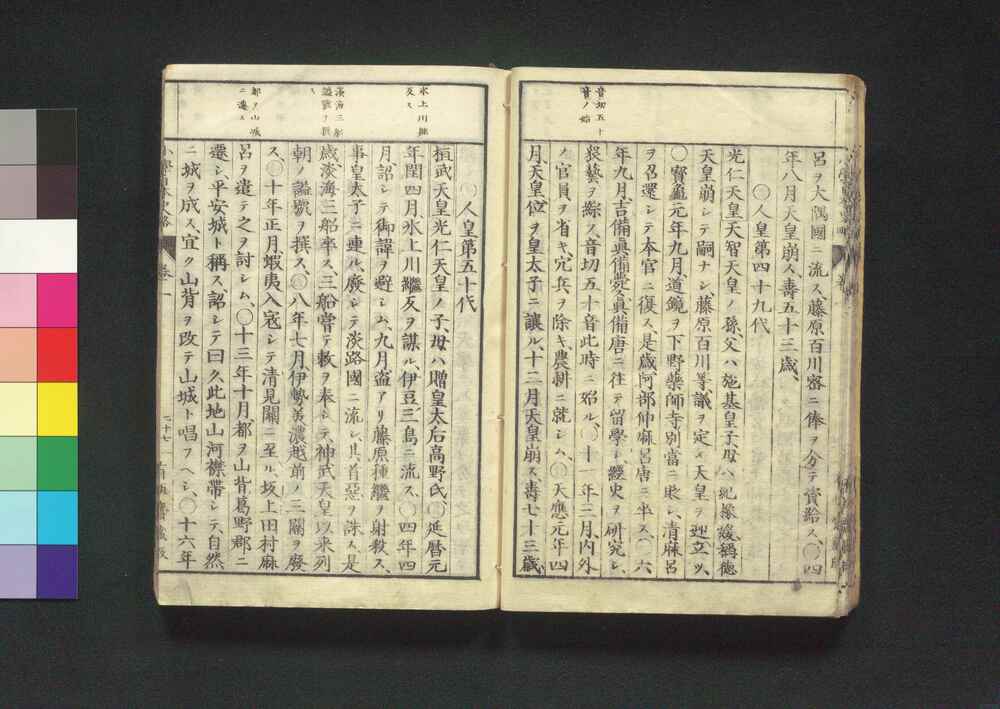 音切五十
音ノ始
呂ヲ大隅國ニ流ス藤原百川密ニ俸ヲ分テ賚給ス、〇四
年八月天皇崩ス、壽五十三歳、
〇人皇第四十九代
光仁天皇天智天皇ノ孫、父ハ施基皇子、母ハ紀橡媛稱德
天皇崩シテ嗣ナシ、藤原百川等議ヲ定メ天皇ヲ迎立ツ、
〇寶龜元年九月、道鏡ヲ下野藥師寺別當ニ貶シ、清麻呂
ヲ召還シテ本官ニ復ス、是歳阿部仲麻呂唐ニ卒ス、〇六
年九月、吉備眞備薨、眞備唐ニ往テ留學シ、經史ヲ研究シ、
衆藝ヲ綜ス、音切五十音此時ニ始ル、〇十一年三月、内外
ノ官員ヲ省キ、冗兵ヲ除キ、農耕ニ就シム、〇天應元年四
月、天皇位ヲ皇太子ニ讓ル、十二月天皇崩ス、壽七十三歳、
氷上川繼
反ス
淡海三船
諡號ヲ撰
ス
都ヲ山城
ニ遷ス
〇人皇第五十代
桓武天皇光仁天皇ノ子、母ハ贈皇太后高野氏、〇延曆元
年閏四月、氷上川繼反ヲ謀ル、伊豆三島ニ流ス、〇四年四
月、詔シテ御諱ヲ避シム、九月盗アリ藤原種繼ヲ射殺ス、
事皇太子ニ連ル、廢シテ淡路國ニ流シ、其首惡ヲ誅ス、是
歳、淡海三船卒ス、三船嘗テ敕ヲ奉シテ、神武天皇以来列
朝ノ諡號ヲ撰ス、〇八年七月伊勢美濃越前ノ三關ヲ廢
ス、〇十年正月、蝦夷入寇シテ清見關ニ至ル、坂上田村麻
呂ヲ遣テ之ヲ討シム、〇十三年十月都ヲ山背葛野郡ニ
遷シ、平安城ト稱ス、詔シテ曰久此地山河襟帶シテ、自然
ニ城ヲ成ス、宜ク山背ヲ改テ山城ト唱フヘシ、〇十六年
卷一
二十七